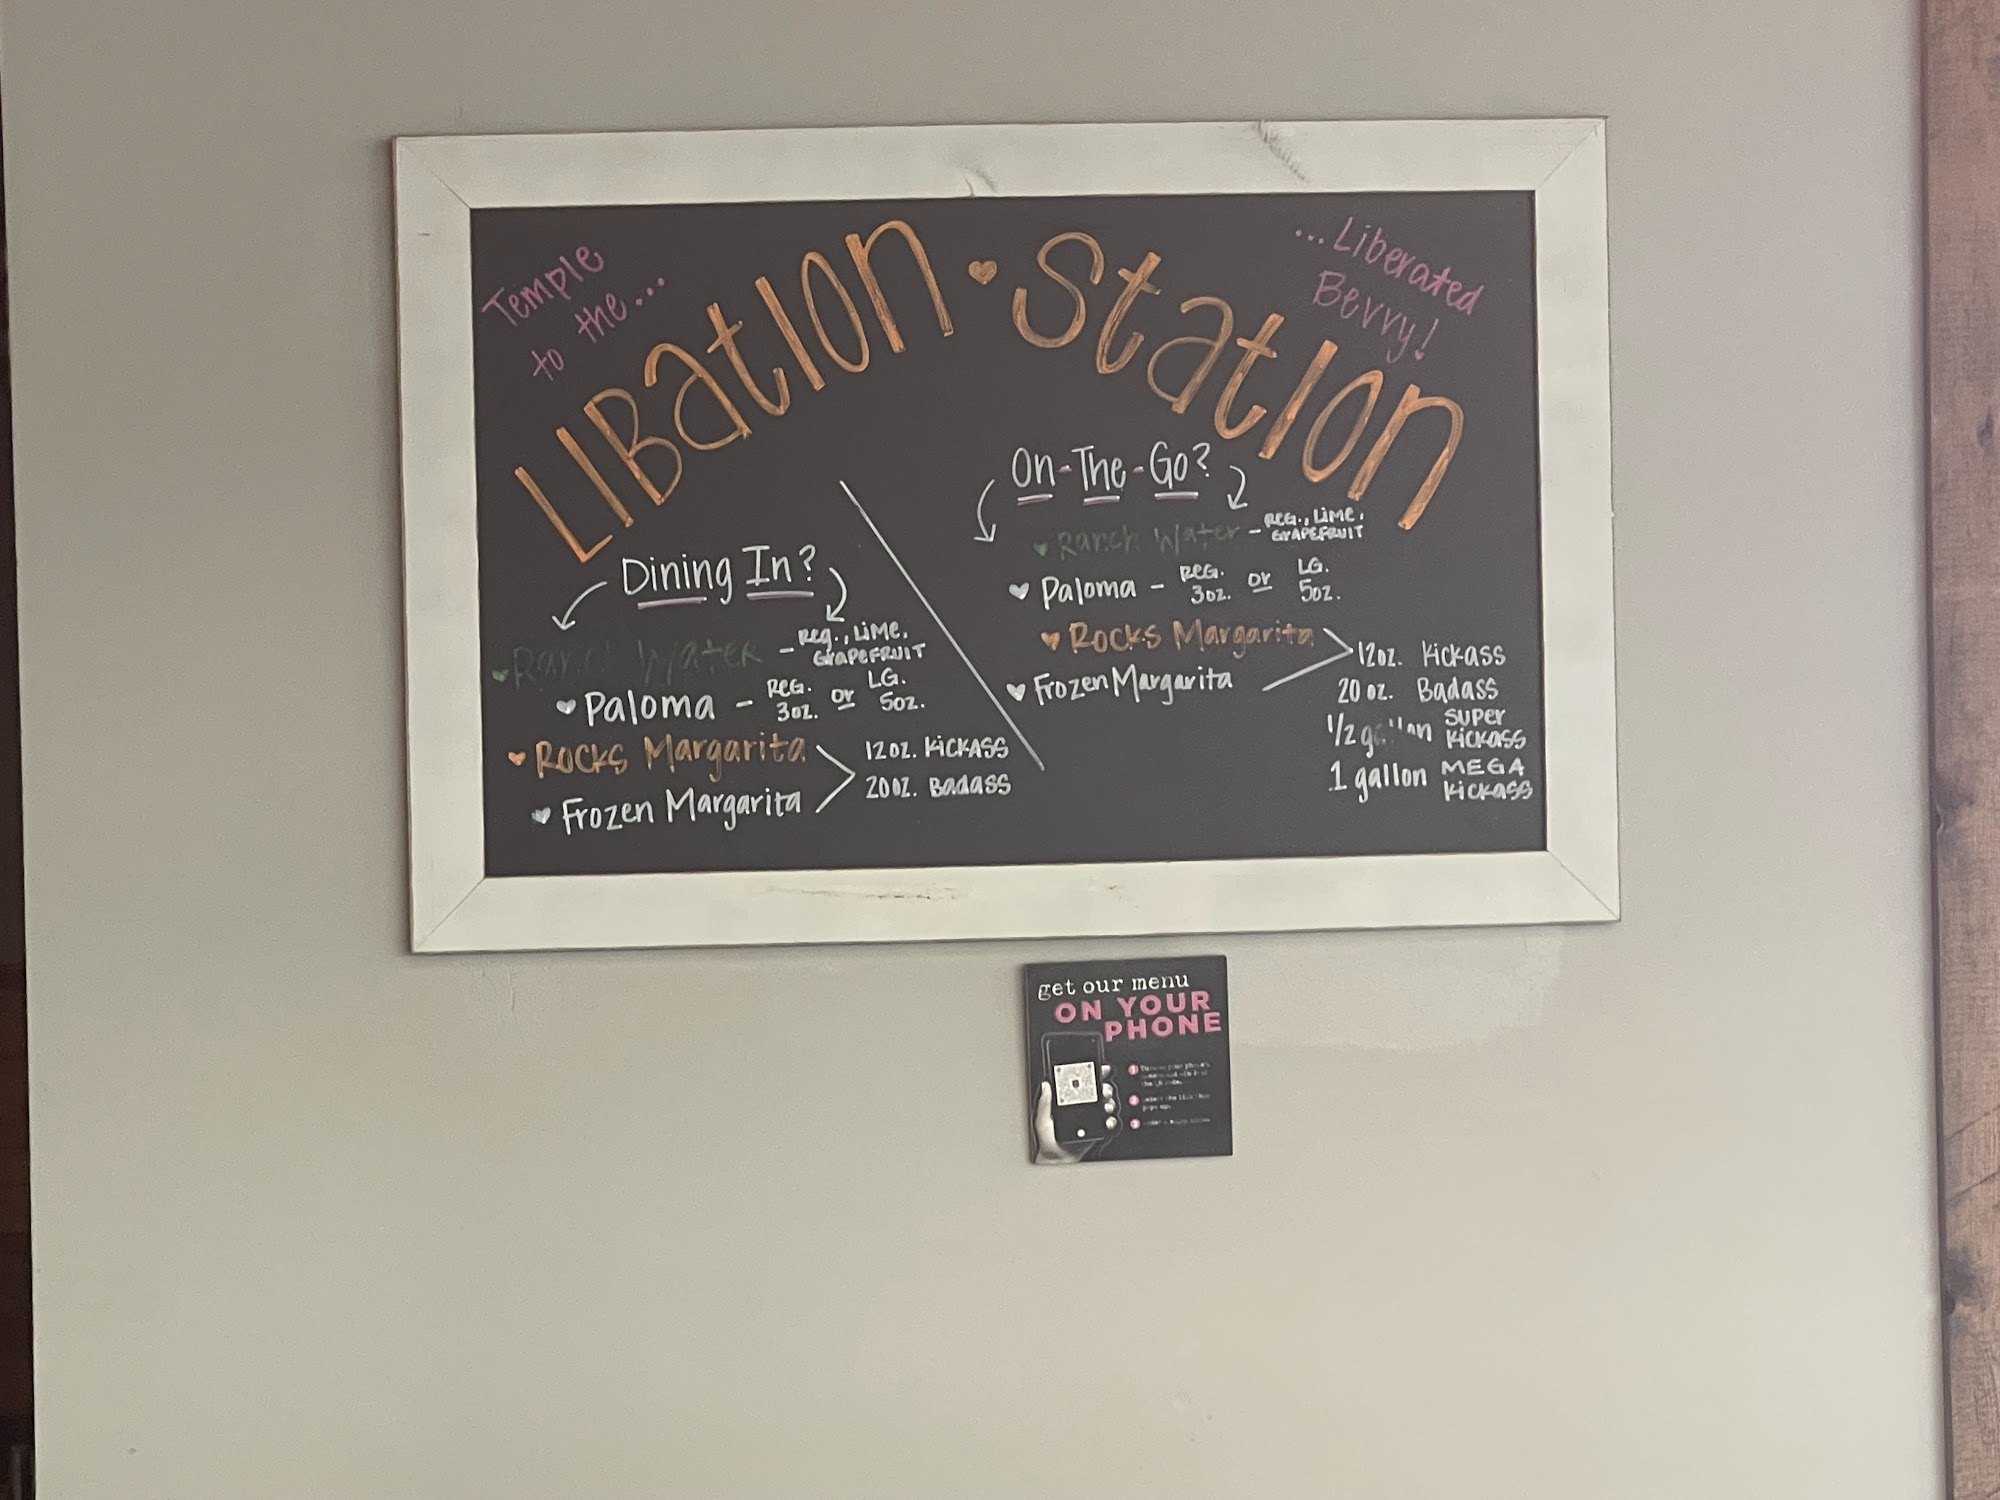 Temple
to the...
LIBatIon ♥ StatIon
...Liberated
Bevvy!
Dining In?
♥ Ranch Water - Reg., LIME,
GRAPEFRUIT
♥ Paloma - REG. or LG.
3oz. 5oz.
♥ ROCKS Margarita
♥ Frozen Margarita
12oz. KICKASS
20oz. Badass
On-The-Go?
♥ Ranch Water - REG., LIME,
GRAPEFRUIT
♥ Paloma - REG. or LG.
3oz. 5oz.
♥ ROCKS Margarita
♥ Frozen Margarita
12oz. Kickass
20 oz. Badass
1/2 gallon SUPER
Kickass
1 gallon MEGA
Kickass
get our menu
ON YOUR
PHONE
1
2
3